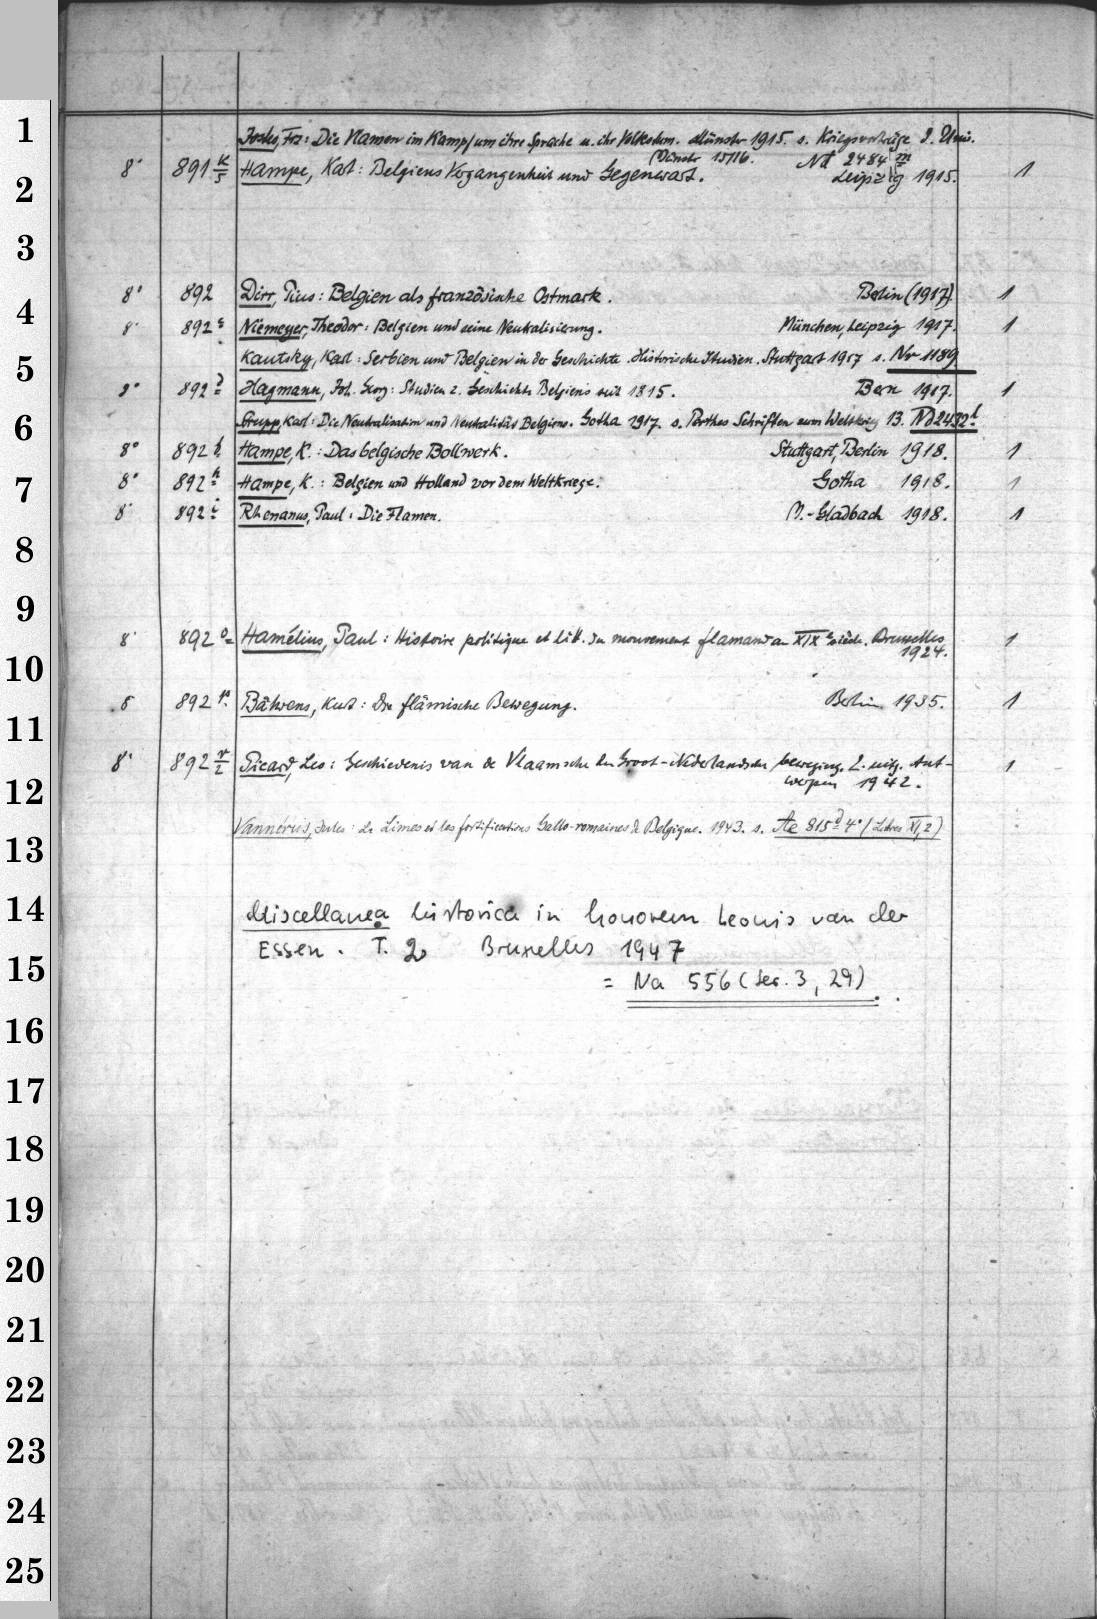 1
Jostes, Frz: Die Vlamen im Kampf um ihre Sprache u. ihr Volkstum. Münster 1915. s. Kriegsvorträge d. Univ.
Münster 15/16. Nd 2484 m
2
8° 891 k/5 Hampe, Karl: Belgiens Vergangenheit und Gegenwart. Leipzig 1915. 1
3
4
8° 892 Dirr, Pius: Belgien als französische Ostmark. Berlin (1917). 1
8° 892 c Niemeyer, Theodor: Belgien und seine Neutralisierung. München, Leipzig 1917. 1
5
Kautsky, Karl: Serbien und Belgien in der Geschichte. Historische Studien. Stuttgart 1917 s. Nw 1189
8° 892 d Hagmann, Joh. Georg: Studien z. Geschichte Belgiens seit 1815. Bern 1917. 1
6
Strupp, Karl: Die Neutralisation und Neutralität Belgiens. Gotha 1917. s. Perthes Schriften zum Weltkrieg 13. Nd 2432 l
8° 892 h Hampe, K.: Das belgische Bollwerk. Stuttgart, Berlin 1918. 1
7
8° 892 h Hampe, K.: Belgien und Holland vor dem Weltkriege. Gotha 1918. 1
8° 892 i Rhenanus, Paul: Die Flamen. M.-Gladbach 1918. 1
8
9
8° 892 o Hamélius, Paul: Histoire politique et litt. du mouvement flamand au XIX e siècle. Bruxelles
1924. 1
10
8 892 r Bährens, Kurt: Die flämische Bewegung. Berlin 1935. 1
11
8° 892 r/2 Picard, Leo: Geschiedenis van de Vlaamsche en Groot-Nederlandsche beweging. 2. uitg. Ant-
werpen 1942. 1
12
Vannérus, Jules: Le Limes et les fortifications Gallo-romaines de Belgique. 1943. s. Ae 815 d 4° (Lettres XI, 2)
13
14
Miscellanea historica in honorem Leonis van der
Essen. T. 2 Bruxelles 1947
15
= Na 556 (Ser. 3, 29)
16
17
18
19
20
21
22
23
24
25